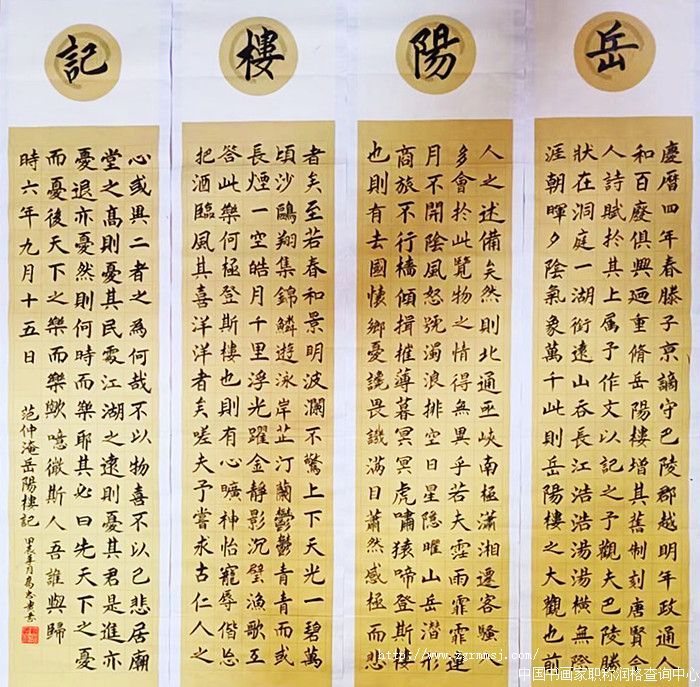 岳陽樓記
慶曆四年春滕子京謫守巴陵郡越明年政通人
和百廢俱興廼重脩岳陽樓增其舊制刻唐賢今
人詩賦於其上属予作文以記之予觀夫巴陵勝
狀在洞庭一湖銜遠山吞長江浩浩湯湯橫無際
涯朝暉夕陰氣象萬千此則岳陽樓之大觀也前
人之述備矣然則北通巫峽南極瀟湘遷客騷
多會於此覽物之情得無異乎若夫霪雨霏霏連
月不開陰風怒號濁浪排空日星隱曜山岳潛形
商旅不行檣傾揖摧薄暮冥冥虎嘯猿啼登斯樓
也則有去國懷鄉憂讒畏譏滿目蕭然感極而悲
者矣至若春和景明波瀾不驚上下天光一碧萬
頃沙鷗翔集錦鱗遊泳岸芷汀蘭鬱鬱青青而或
長煙一空皓月千里浮光躍金靜影沉璧漁歌互
答此樂何極登斯樓也則有心曠神怡寵辱偕忘
把酒臨風其喜洋洋者矣嗟夫予嘗求古仁人之
心或異二者之為何哉不以物喜不以己悲居廟
堂之高則憂其民處江湖之遠則憂其君是進亦
憂退亦憂然則何時而樂耶其必曰先天下之憂
而憂後天下之樂而樂歟噫微斯人吾誰與歸
時六年九月十五日
范仲淹岳陽樓記
http://www.zgrmmsj.com/
中国书画家职称润格查询中心